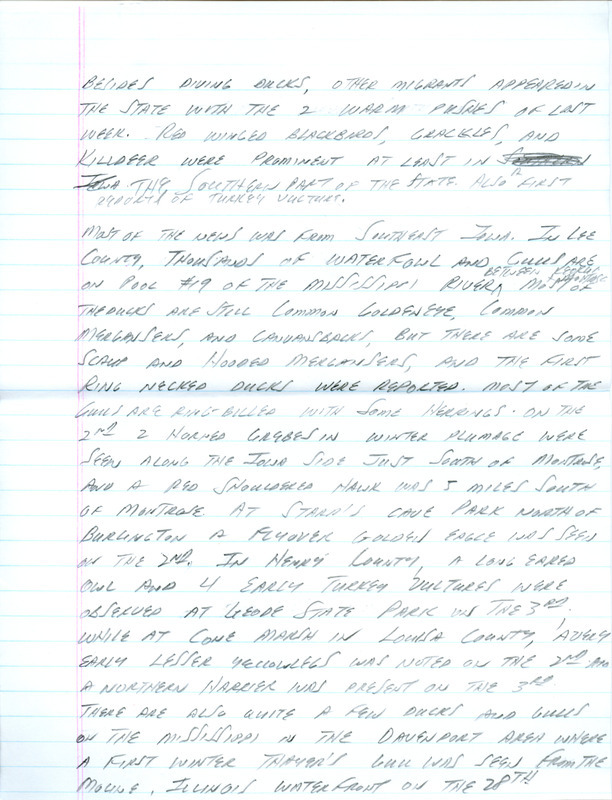 BESIDES DIVING DUCKS, OTHER MIGRANTS APPEARED IN
THE STATE WITH THE 2 WARM PUSHES OF LAST
WEEK. RED WINGED BLACKBIRDS, GRACKLES, AND
KILLDEER WERE PROMINENT AT LEAST IN
THE SOUTHERN PART OF THE STATE. ALSO FIRST
REPORTS OF TURKEY VULTURE.
MOST OF THE NEWS WAS FROM SOUTHEAST IOWA. IN LEE
COUNTY, THOUSANDS OF WATERFOWL AND GULLS ARE
ON POOL #19 OF THE MISSISSIPPI RIVER BETWEEN KEOKUK AND MONTROSE. MOST OF
THE DUCKS ARE STILL COMMON GOLDENEYE, COMMON
MERGANSERS, AND CANVASBACKS, BUT THERE ARE SOME
SCAUP AND HOODED MERGANSERS, AND THE FIRST
RING NECKED DUCKS WERE REPORTED. MOST OF THE
GULLS ARE RING-BILLED WITH SOME HERRINGS. ON THE
2ND 2 HORNED GREBES IN WINTER PLUMAGE WERE
SEEN ALONG THE IOWA SIDE JUST SOUTH OF MONTROSE,
AND A RED SHOULDERED HAWK WAS 5 MILES SOUTH
OF MONTROSE. AT STARR'S CAVE PARK NORTH OF
BURLINGTON A FLYOVER GOLDEN EAGLE WAS SEEN
ON THE 2ND. IN HENRY COUNTY, A LONG EARED
OWL AND 4 EARLY TURKEY VULTURES WERE
OBSERVED AT GEODE STATE PARK ON THE 3RD,
WHILE AT CONE MARSH IN LOUISA COUNTY, A VERY
EARLY LESSER YELLOWLEGS WAS NOTED ON THE 2ND AND
A NORTHERN HARRIER WAS PRESENT ON THE 3RD.
THERE ARE ALSO QUITE A FEW DUCKS AND GULLS
ON THE MISSISSIPPI IN THE DAVENPORT AREA WHERE
A FIRST WINTER THAYER'S GULL WAS SEEN FROM THE
MOLINE, ILLINOIS WATERFRONT ON THE 28TH